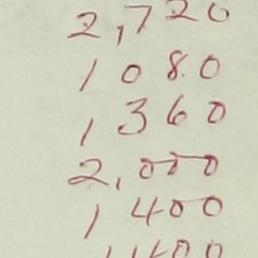 2,720
1080
1360
2,000
1400
1400